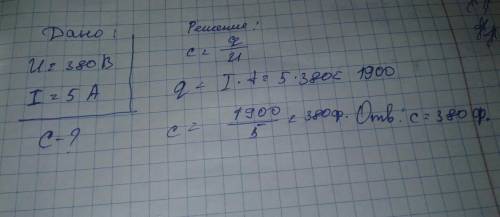 Дано:
U = 380 В
I = 5 А
С - ?
Решение:
c = q/u
q = I · t = 5 · 380 = 1900
c = 1900/5 = 380 ф. Отв: c = 380 ф.